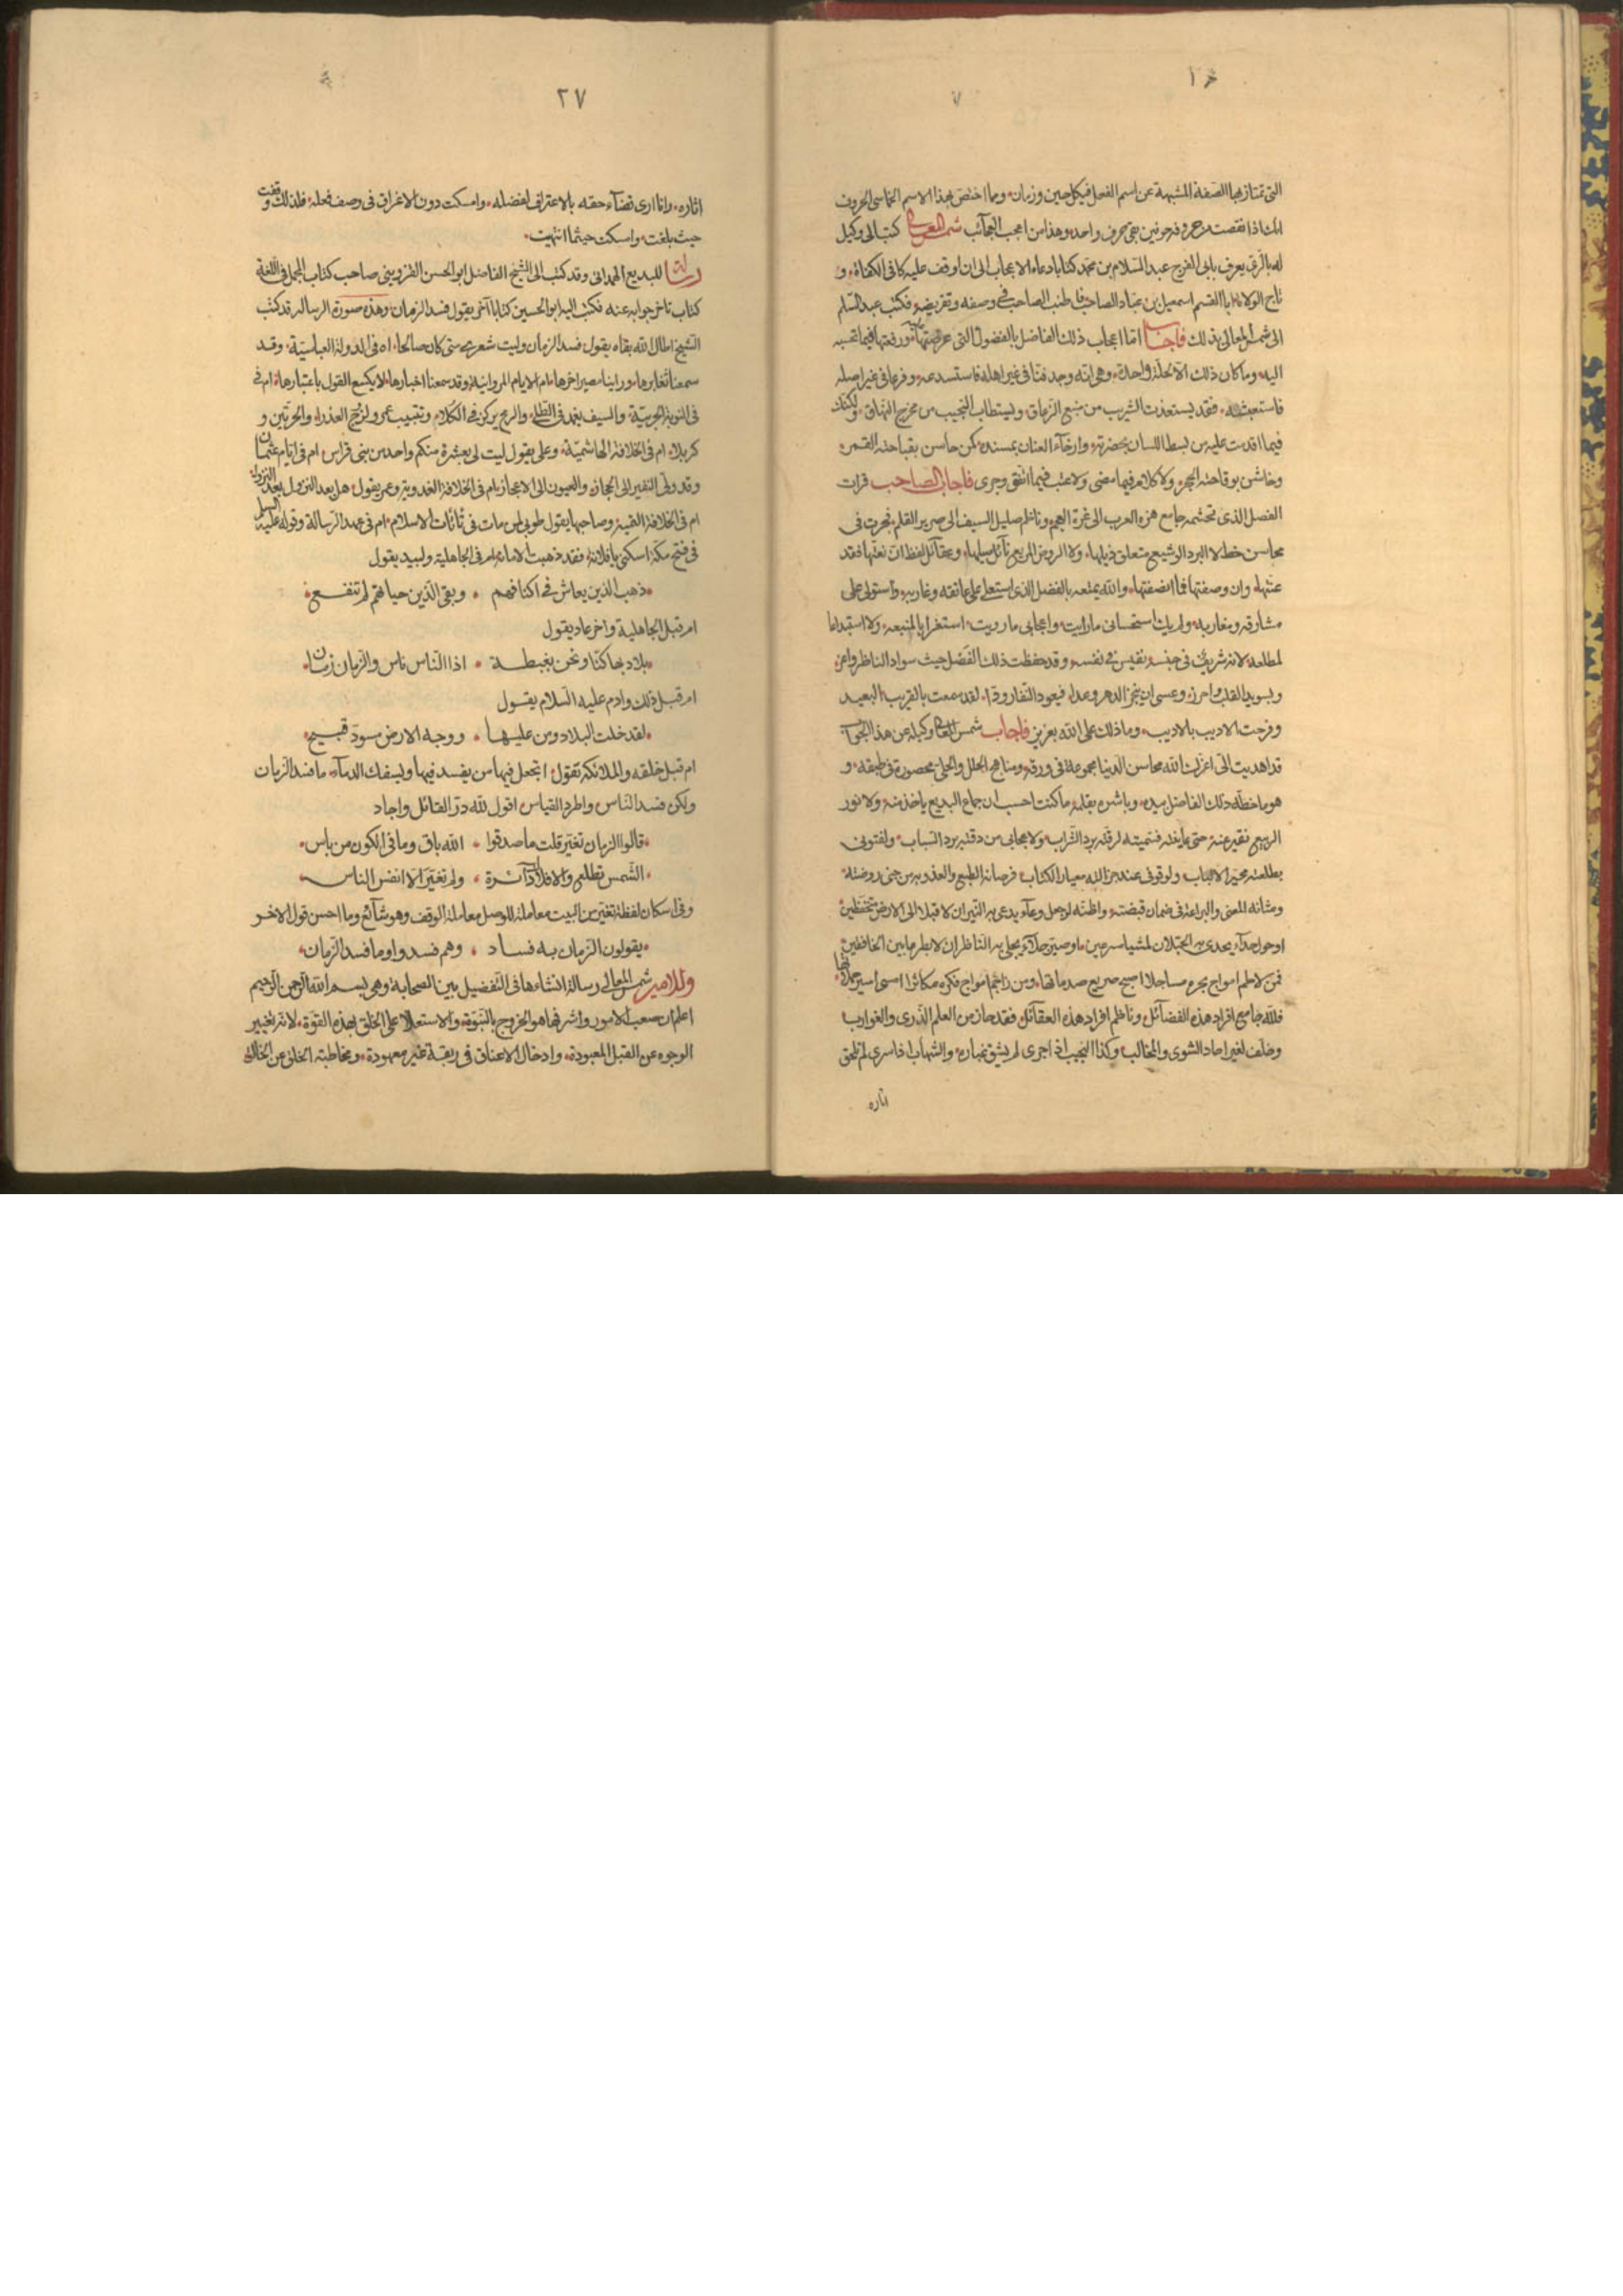 التى تمتاز بها الصفة المشبهة عن اسم الفعل فى كل حين وزمان وما اختص بهذا الاسم الخماسى الحروف
انك اذا نقصت من حروفه حرفين بقى حرف واحد وهذا من اعجب العجائب شمس المعالى كتب الى وكيل
له بالرى يعرف بابى الفرج عبد السلام بن محمد كتابا دعاه الاعجاب الى ان اوقف عليه كافى الكفاة و
تاج الولاة ابا القسم اسمعيل بن عباد الصاحب فاطنب الصاحب فى وصفه وتقريضه فكتب عبد السلم
الى شمس المعالى بذلك فاجابه اما اعجاب ذلك الفاضل بالفصول التى عرضتها ورفعتها فيما تحسبه
اليه وما كان ذلك الا لخلة واحدة وهى انه وجد فنا فى غير اهله فاستبدعه وفرعا فى غير اصله
فاستعبث له فقد يستعذب الشريب من منبع الزعاق ويستطاب النحيب من مخرج النهاق ولكنك
فيما اقدمت عليه من بسط اللسان بحضرته وارخاء العنان بمسنده كمن حاسن بقباحته القمر
وخاشن بوقاحته الحجر ولا كلام فيما مضى ولا عتب فيما اتفق وجرى فاجاب الصاحب قرات
الفصل الذى تجشمه جامع هزة العرب الى غرة العجم وناظم صليل السيف الى صرير القلم فحرت فى
محاسن خط لا البرد الوشيع متعلق ذيلها ولا الروض المريع نائل سيلها وعقائل لفظ ان نعتها فقد
عنتها وان وصفتها فما انصفتها والله يمتعه بالفضل الذى استعلى على عاتقه وغاربه واستولى على
مشارقه ومغاربه ولم يك استحسانى ما رايت واعجابى ما رويت استغرابا لمنبعه ولا استبداعا
لمطلعه لانه شريف فى جنسه نفيس فى نفسه وقد حفظت ذلك الفصل حيث سواد الناظر واعز
وبسويد القلب واحرز وعسى ان ينجز الدهر وعدا فيعود النفار ودا لقد سمعت بالقريب البعيد
وفرحت الاديب بالاديب وما ذلك على الله بعزيز فاجاب شمس المعالى وكيله عن هذا الجواب
قد اهديت الى اعزك الله محاسن الدنيا مجموعة فى ورقه ومناهج الحلل والحلى محصورة فى طبقه و
هو ما خطه ذلك الفاضل بيده وباشره بقلمه ما كنت احسب ان جماع البديع ياخذ منه ولا نور
الربيع نقير عنه حتى عاينته فتميته لرقته برد الشراب ولاعجابى من دقته برد الشباب ولفتونى
بطلعته محير الالباب ولوقوفى عنده جزالله معيار الكتاب
ومثانه المعنى والبراعة فى ضمان قبضته
فمن لاطم امواج بحره مساجلا اصبح صريع صدماتها ومن زاحم امواج فكره مكاثرا امسى اسير حملاتها
فلله جامع افراد هذه الفضائل وناظم افراد هذه العقائل فقد حاز من العلم الذرى والغوارب
وخلف لغير احاد الشوى والمخالب وكذا النجيب اذ اجرى لم يشق غباره والشهاب اذا سرى لم تلحق
اثاره
٢٧
اثاره وانا ارى قضاء حقه بالاعتراف لفضله وامسكت دون الاغراق فى وصف فعله فلذلك وقفت
حيث بلغت وامسكت حيثما انتهيت
رسالة للبديع الهمدانى وقد كتب الى الشيخ الفاضل ابو الحسن القزوينى صاحب كتاب المجمل فى اللغة
كتاب تاخر جوابه عنه فكتب اليه ابو الحسين كتابا آخر يقول فسد الزمان وهذه صورة الرساله قد كتب
الشيخ اطال الله بقاه يقول فسد الزمان وليت شعرى متى كان صالحا اه فى الدولة العباسية وقد
سمعنا بغابرها وراينا مصير اخرها ام الايام المروانية وقد سمعنا اخبارها لا يكسع الشول باغبارها ام فى
فى النوبة الحربية والسيف يغمد فى الطلى والرمح يركز فى الكلى
كربلا ام فى الخلافة الهاشمية وعلى يقول ليت لى بعشرة منكم واحد من بنى فراس ام فى ايام عثمان
وقد ولى النفير الى الحجاز والعيون الى الاعجاز ام فى الخلافة العدوية وعمر يقول هل بعد النزول بعد النزول
ام فى الخلافة التيمية وصاحبها يقول طوبى لمن مات فى نانات الاسلام ام فى عهد الرسالة وقوله عليه السلم
فى فتح مكة اسكتى يا فلانة فقد ذهبت الامانة ام فى الجاهلية ولبيد يقول
ذهب الذين يعاش فى اكنافهم وبقى الذين حياتهم لم تنفع
ام قبل الجاهلية واخر عاد يقول
بلاد بها كنا ونحن بغبطة اذا الناس ناس والزمان زمان
ام قبل ذلك وادم عليه السلام يقول
لقد خلت البلاد ومن عليها ووجه الارض مسود قبيح
ام قبل خلقه والملائكة تقول اتجعل فيها من يفسد فيها ويسفك الدماء ما فسد الزمان
ولكن فسد الناس واطرد القياس اقول لله در القائل واجاد
قالوا الزمان تغير قلت ما صدقوا الله باق وما فى الكون من باس
الشمس تطلع والافلاك دائرة ولم تغير الا انفس الناس
وفى اسكان لفظة تغير من البيت معاملة للوصل معاملة الوقف وهو شائع وما احسن قول الاخر
يقولون الزمان به فساد وهم فسدوا وما فسد الزمان
وللامير شمس المعالى رسالة انشاءها فى التفضيل بين الصحابة وهى بسم الله الرحمن الرحيم
اعلم ان صعب الامور واشرفها هو الخروج بالنبوة والاستعلا على الخلق بهذه القوة لانه تغيير
الوجوه عن القبل المعبودة وادخال الاعناق فى ربقة غير معهودة ومخاطبة الخلق عن الخالق